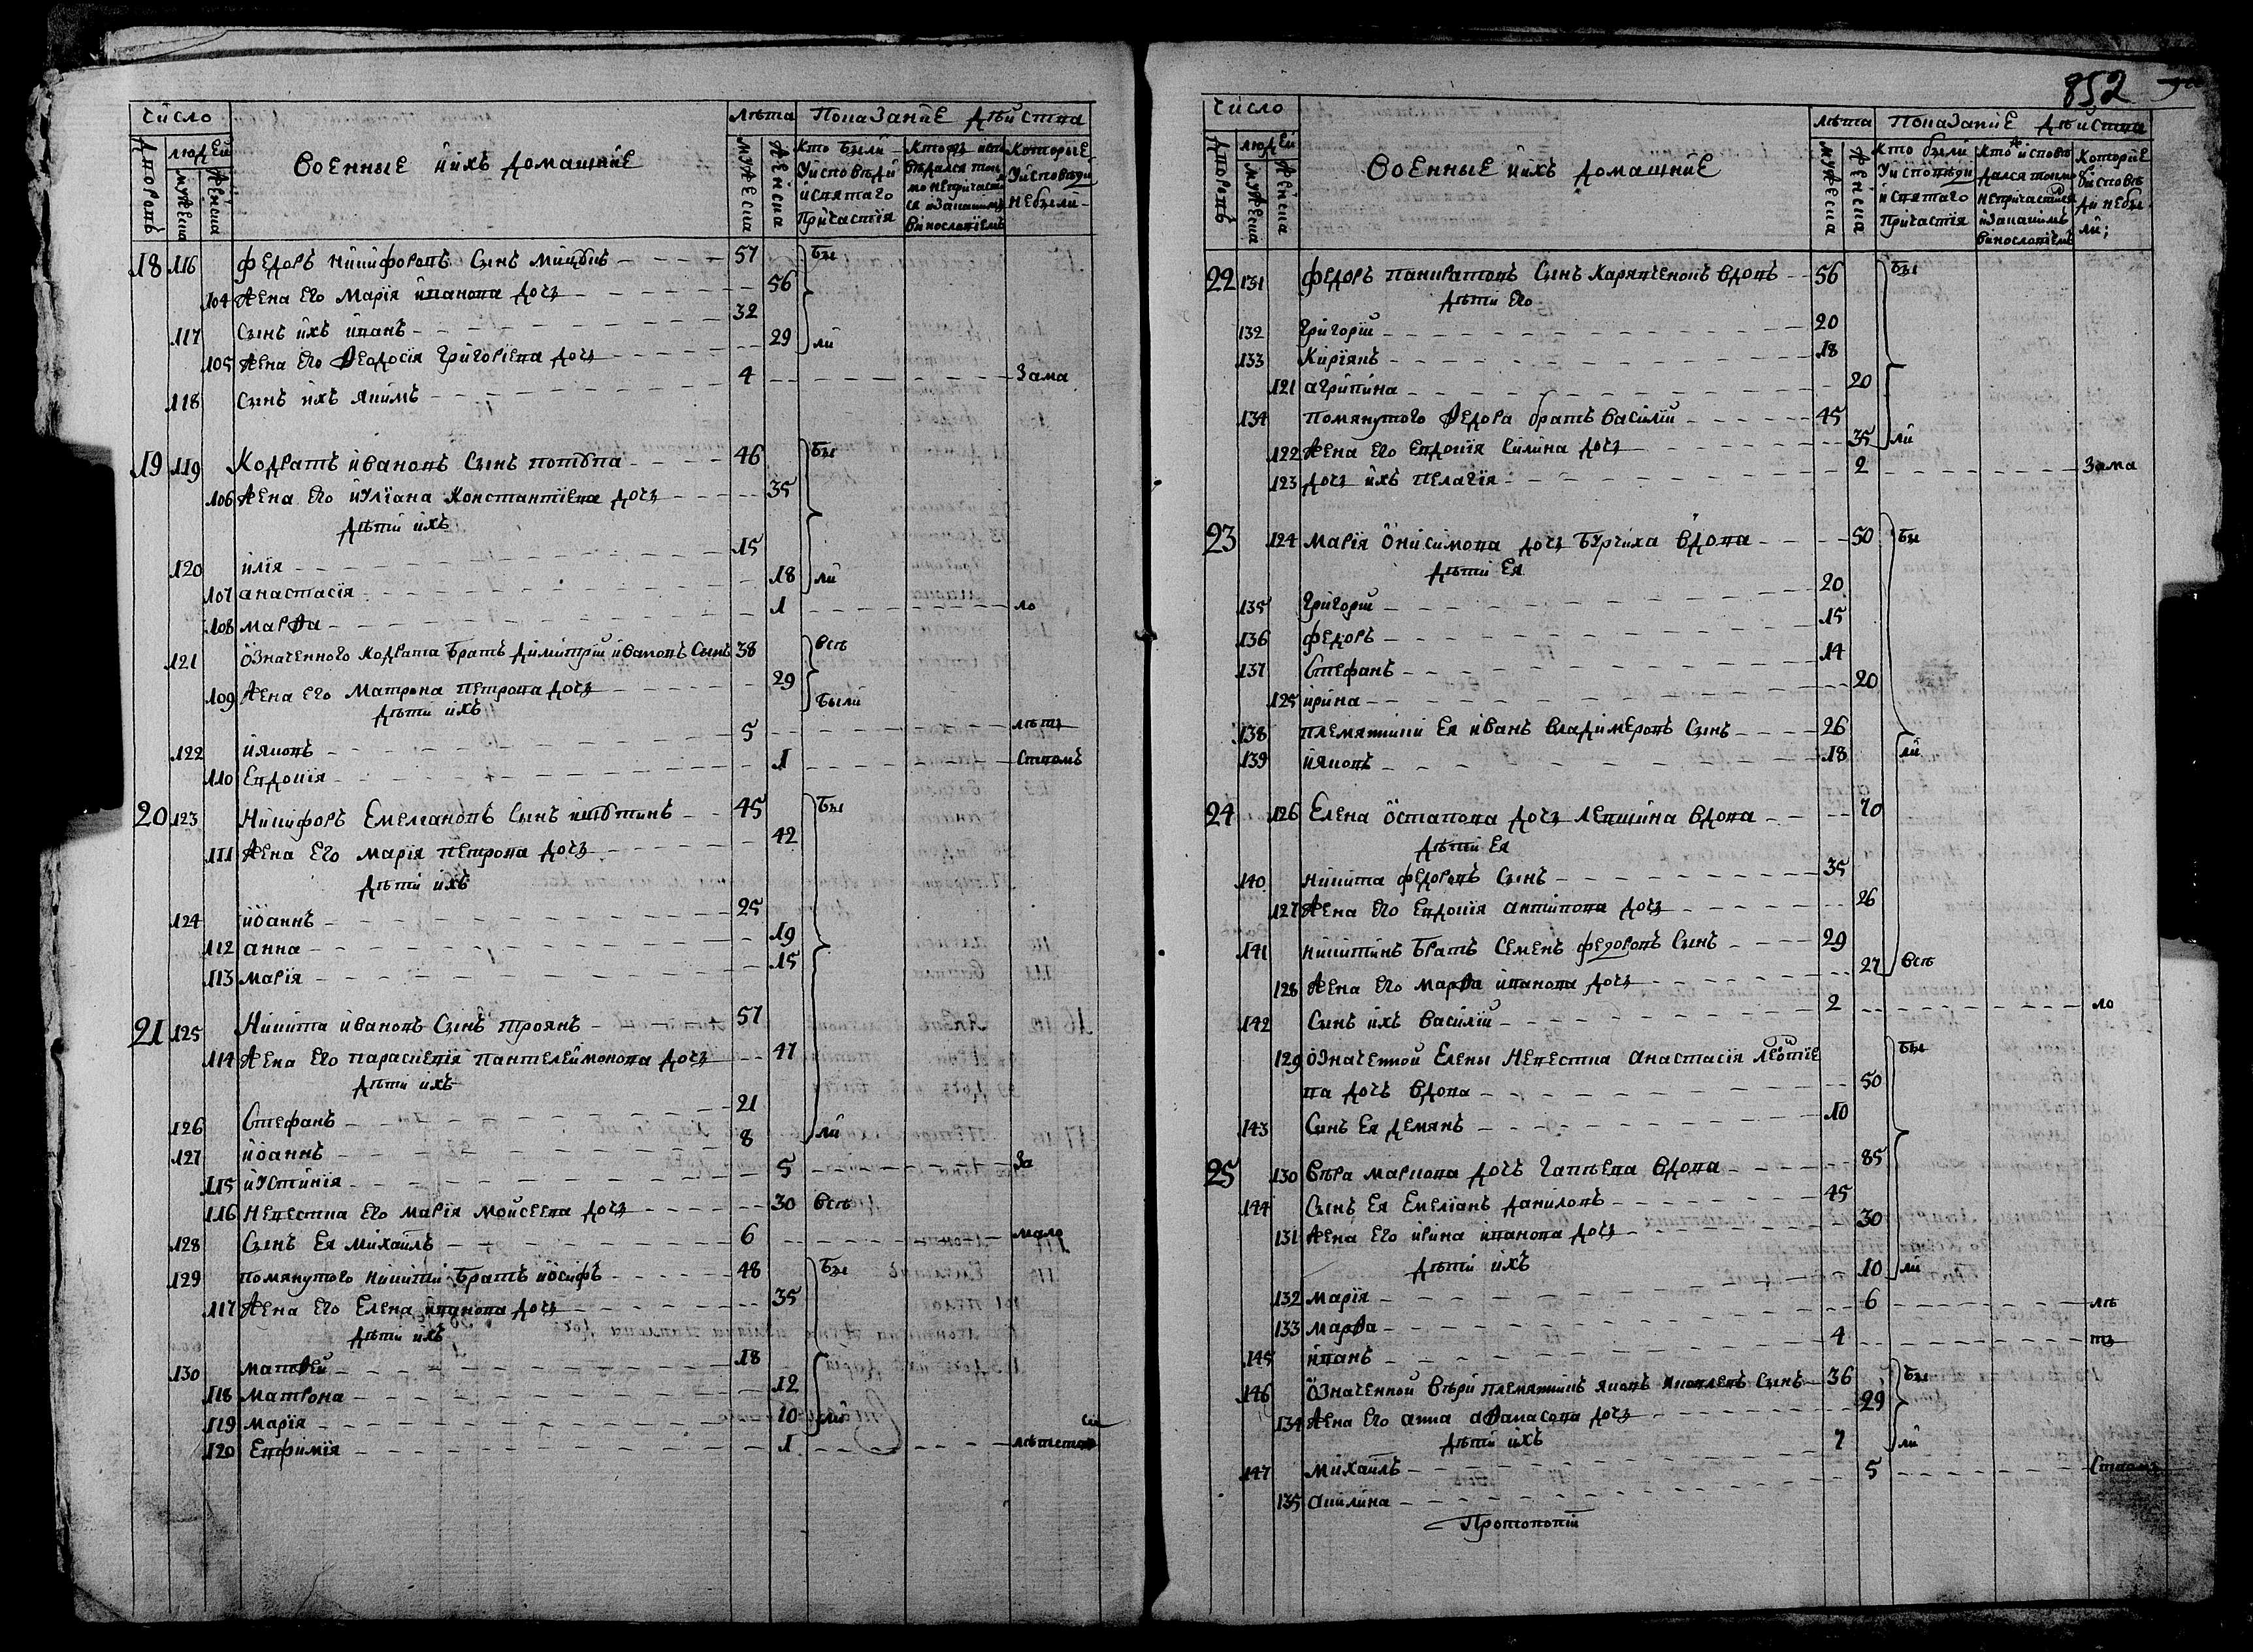 число
людей
дворовъ
мужеска
женска
Военные ийхъ домашние
лѣта
мужеска
женска
Показание дѣиства
Кто были
Уисповѣди
исвятаго
Причастия
18 116 федоръ никифоровъ сынъ 57 Бы
104 жена его Мария ивановa дочь 56
117 Сынъ ихъ иванъ 32
105 жена его Ѳеодосия Григориева дочь 29 ли
118 Сынъ ихъ яким 4 Зама
19 119 Кодратъ ивановъ Сынъ 46 Бы
106 жена его иулиана Константиева дочь 35
дѣти ихъ
120 илия 15
107 анастасия 18 ли
108 марѳа 1 ло
121 означенного Кодрата Братъ димитрий ивановъ Сынъ 38 Всѣ
109 жена его Матрона петрова дочь 29 Были
дѣти ихъ
122 ияковъ 5 лѣтъ
110 Евдокия 1 Ствомъ
20 123 Никифоръ Емелиановъ Сынъ 45 Бы
111 жена его мария петрова дочь 42
дѣти ихъ
124 иоаннъ 25
112 анна 19
113 мария 15
21 125 Никита ивановъ Сынъ троянъ 57
114 жена его параскевия пантелеймонова дочь 47
дѣти ихъ
126 Стефанъ 21
127 иоаннъ 8 ли
115 иустиния 5 За
116 Невестка его мария моисеева дочь 30 Всѣ
128 Сынъ ея михаилъ 6 мало
129 помянутого никити Братъ иосифъ 48 Бы
117 жена его Елена иванова дочь 35
дѣти ихъ
130 матѳей 18
118 матрона 12
119 мария 10 ли
120 Евфимия 1
852
число
людей
дворовъ
мужеска
женска
Военные ийхъ домашние
лѣта
мужеска
женска
Показание дѣиства
Кто были
Уисповѣди
исвятаго
Причастия
22 131 федоръ панкратовъ Сынъ Карявченокъ вдовъ 56 Бы
дѣти его
132 Григорий 20
133 Кириянъ 18
121 агрипина 20
134 помянутого Ѳедора братъ василий 45
122 жена его Евдокия Силина дочь 35 ли
123 дочь ихъ пелагия 2 Зама
23 124 мария онисимова дочь Бурчиха вдова 50 Бы
дѣти Ея
135 Григорий 20
136 федоръ 15
137 Стефанъ 14
125 ирина 20
138 племянник Ея иванъ владимеровъ Сынъ 26
139 ияковъ 18 ли
24 126 Елена остапова дочь левшина вдова 70
дѣти Ея
140 никита федоровъ Сынъ 35
127 жена его Евдокия антипова дочь 26
141 никитинъ Братъ Семенъ федоровъ Сынъ 29
128 жена его марѳа иванова дочь 27 Всѣ
142 Сынъ ихъ василий 2 ло
129 означенной Елены невестка анастасия леотие Бы
ва дочь вдова 50
143 Синъ Ея демянъ 10
25 130 вѣра маркова дочь вдова 85
144 Сынъ Ея Емелианъ даниловъ 45
131 жена его ирина иванова дочь 30
дѣти ихъ
132 мария 10 ли
133 марѳа 6 лѣ
145 иванъ 4 тъ
146 означенной вѣри племянникъ яковъ яковлевъ Сынъ 36 Бы
134 жена его анна аѳанасова дочь 29
дѣти ихъ
147 михаилъ 7 ли
135 акилина 5 Ствомъ
Протопопий